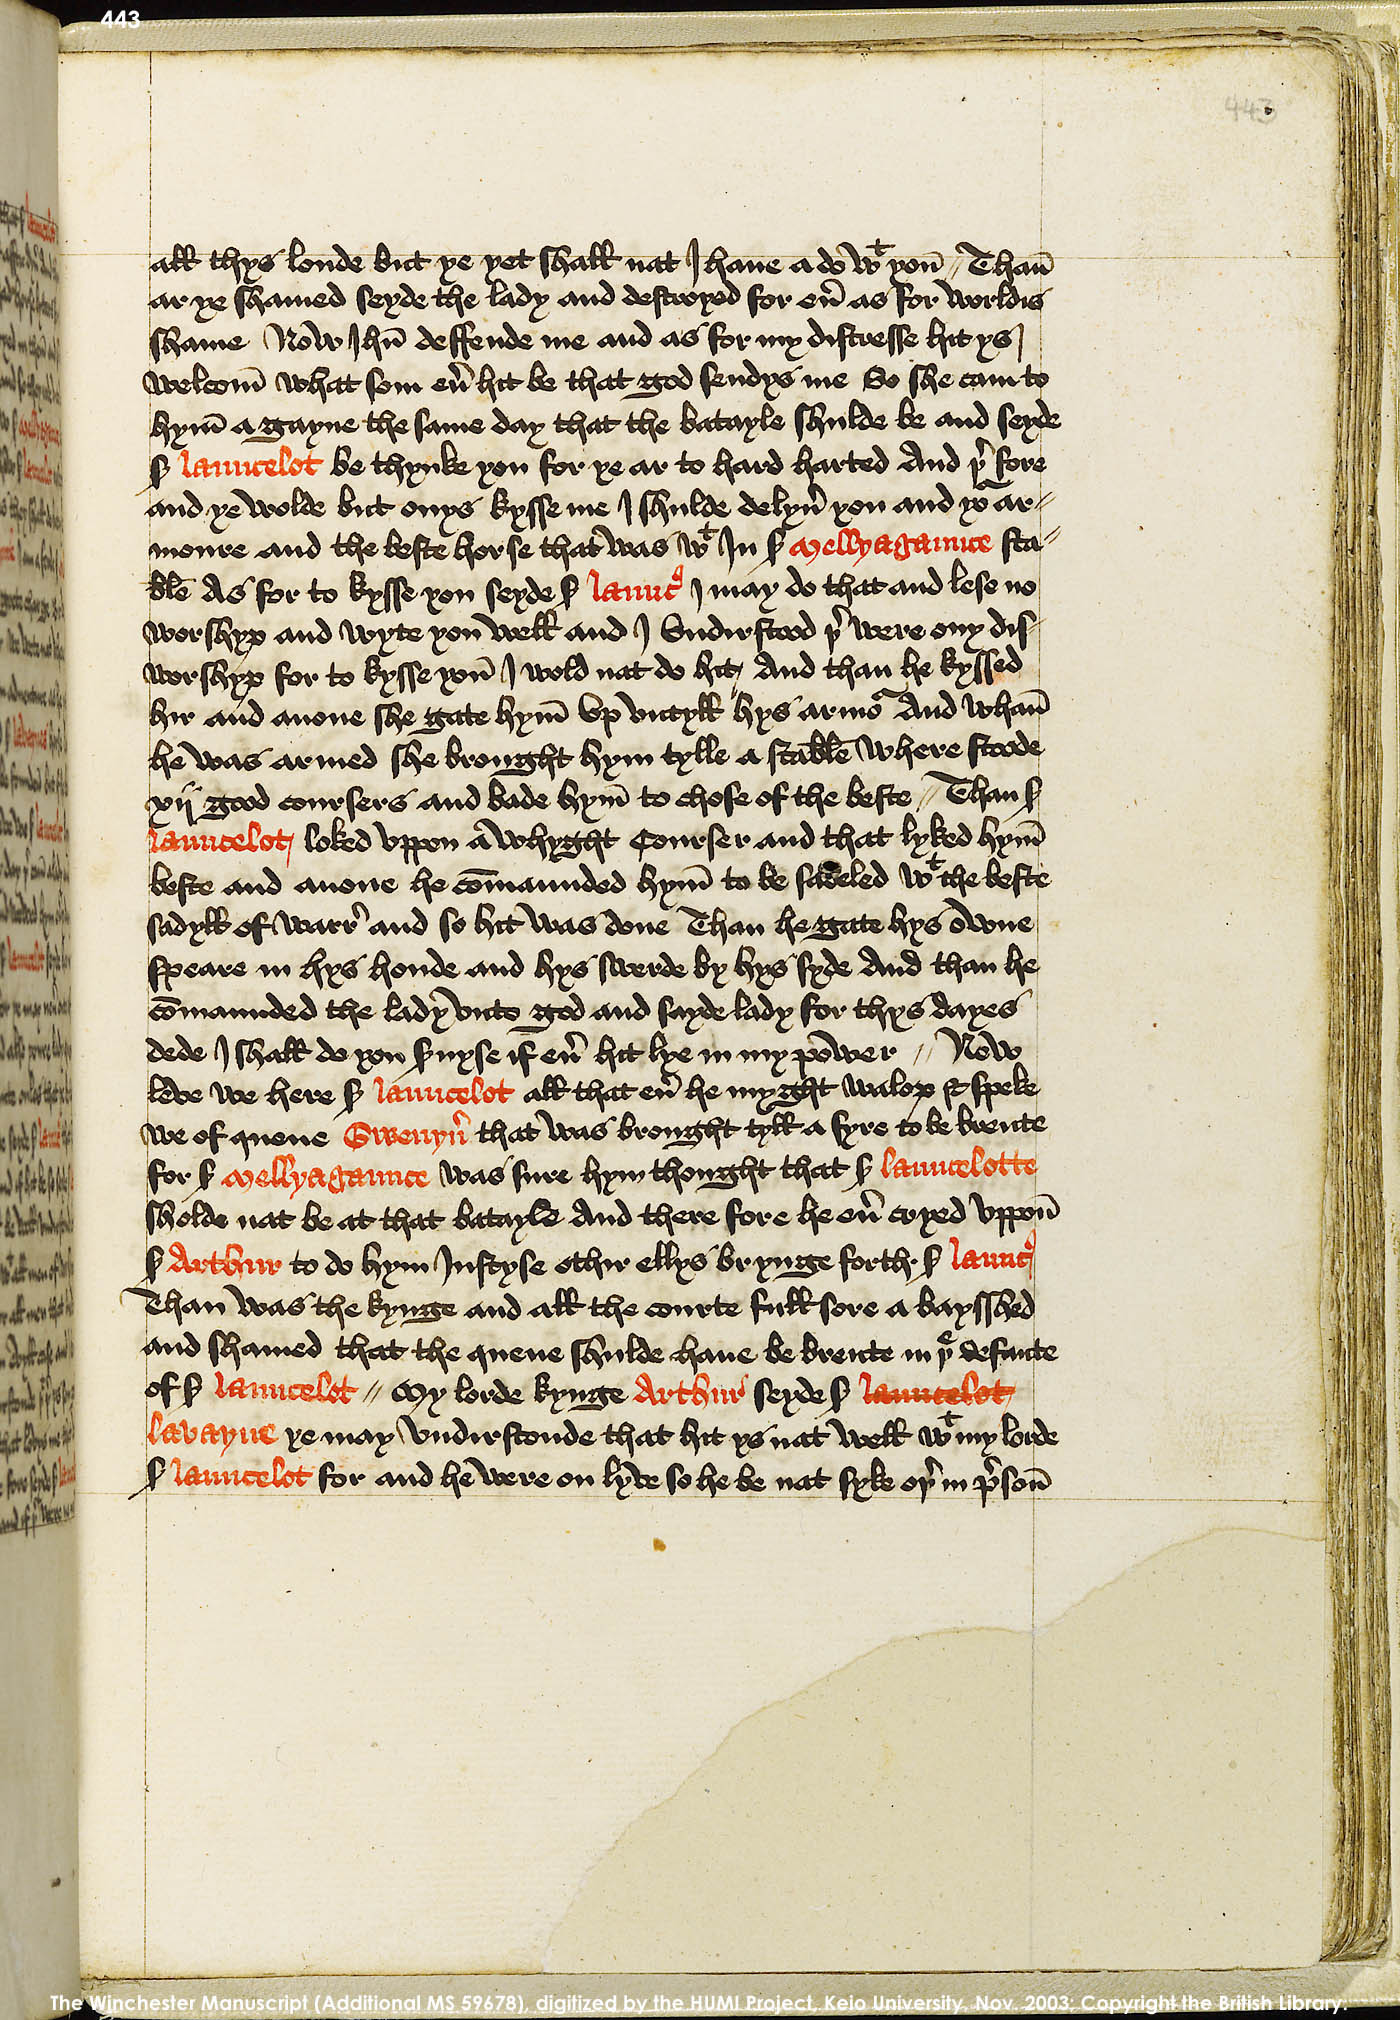 443
443
all thys londe but ye yet shall nat I haue a do wͭ youn̄ // Than̄
ar ye shamed seyde the lady and destroyed for eu̕ as for worldis
shame Now Ihū deffende me and as for my distresse hit ys
welcom̄ what som eu̕ hit be that god sendys me So she cam to
hym̄ a gayne the same day that the batayle shulde be and seyde
ẜ launcelot be thynke you for ye ar to hard harted And þ̕ fore
and ye wolde but onys kysse me I shulde delyu̕ you and yoᷣ ar//
moure and the beste horse that was wͭ In ẜ Mellyagaunce sta//
ble As for to kysse you seyde ẜ launcꝰ I may do that and lese no
worshyp and wyte you well and I vndirstood þ̕ were ony dis//
worshyp for to kysse you I wold nat do hit And than he kyssed
hir and anone she gate hym̄ vp vntyll hys armoᷣ And whan̄
he was armed she brought hym tylle a stable where stoode
xij good coursers and bade hym̄ to chose of the beste // Than ẜ
launcelot loked vppon a whyght Courser and that lyked hym̄
beste and anone he cōmaunded hym̄ to be sadeled wͭ the beste
sadyll of warr̕ and so hit was done Than he gate hys owne
speare in hys honde and hys swerde by hys syde And than he
cōmaunded the lady vnto god and sayde lady for thys dayes
dede I shall do you ẜuyse if eu̕ hit lye in my power // Now
leve we here ẜ launcelot all that eu̕ he myght walop & speke
we of quene Gwenyu̕ that was brought tyll a fyre to be brente
for ẜ Mellyagaunce was sure hym thought that ẜ launcelotte
sholde nat be at that batayle And there fore he eu̕ cryed vppon̄
ẜ Arthur to do hym Iustyse othir ellys brynge forth ẜ launcꝰ
Than was the kynge and all the courte full sore a baysshed
and shamed that the quene shulde haue be brente in þͤ defaute
of ẜ launcelot // My lorde kynge Arthur seyde ẜ launcelot
lavayne ye may vndirstonde that hit ys nat well wͭ my lorde
ẜ launcelot for and he were on lyve so he be nat syke oþ̕ in p̕son̄
The Winchester Manuscript (Additional MS 59678), digitized by the HUMI Project, Keio University, Nov. 2003; Copyright the British Library.